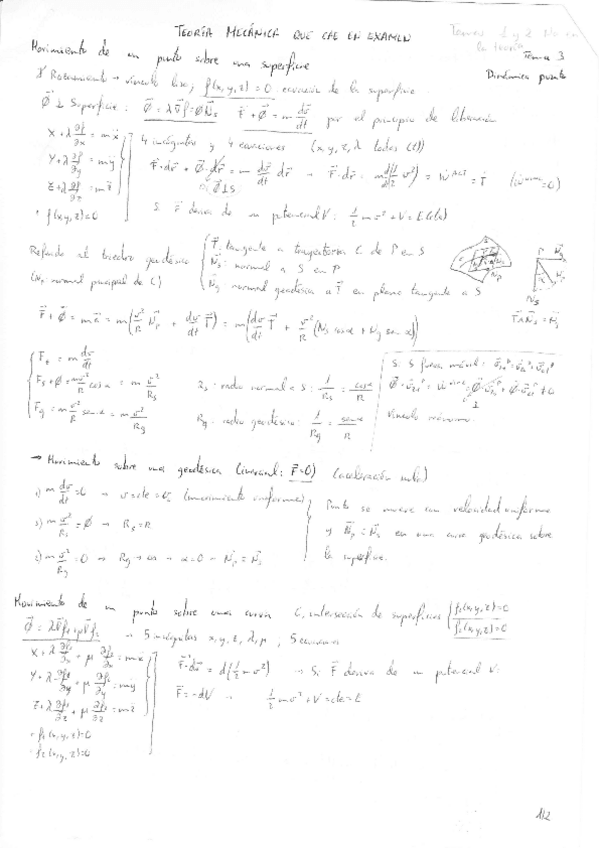 TEORÍA MECÁNICA QUE CAE EN EXAMEN
Temas 1 y 2 No en la teoría
Tema 3
Dinámica punto
Movimiento de un punto sobre una superficie
Rozamiento → vínculo liso; f(x,y,z) = 0 ecuación de la superficie
Φ ⊥ Superficie : Φ = λ∇f = ΦNs F + Φ = m dv/dt por el principio de liberación
X + λ ∂f/∂x = mẍ
Y + λ ∂f/∂y = mÿ
Z + λ ∂f/∂z = mz̈
f(x,y,z) = 0
4 incógnitas y 4 ecuaciones (x, y, z, λ todas (t))
Si F deriva de un potencial V: ½mv² + V = E (cte)
Referido al triedro geodésico
(Np normal principal de C)
T: tangente a trayectoria C de P en S
Ns: normal a S en P
Ng: normal geodésica a T en plano tangente a S
F + Φ = ma = m(v²/R Np + dv/dt T) = m(dv/dt T + v²/R (Ns cosα + Ng senα))
Ft = m dv/dt
Fs + Φ = m v²/R cosα = m v²/Rs
Fg = m v²/R senα = m v²/Rg
Rs: radio normal a S: 1/Rs = cosα/R
Rg: radio geodésico: 1/Rg = senα/R
Si S fuera móvil:
→ Movimiento sobre una geodésica (inercial: F=0)
m dv/dt = 0 → v = cte = v₀ (movimiento uniforme)
m v²/Rs = Φ → Rs = R
m v²/Rg = 0 → Rg → ∞ → α = 0 → Np = Ns
Punto se mueve con velocidad uniforme
y Np = Ns en una curva geodésica sobre
la superficie.
Movimiento de un punto sobre una curva C, intersección de superficies f₁(x,y,z)=0 f₂(x,y,z)=0
Φ = λ∇f₁ + μ∇f₂ → 5 incógnitas x, y, z, λ, μ ; 5 ecuaciones
X + λ ∂f₁/∂x + μ ∂f₂/∂x = mẍ
Y + λ ∂f₁/∂y + μ ∂f₂/∂y = mÿ
Z + λ ∂f₁/∂z + μ ∂f₂/∂z = mz̈
f₁(x,y,z)=0
f₂(x,y,z)=0
F·dr = d(½mv²) → Si F deriva de un potencial V:
F = -dV → ½mv² + V = cte = E
1/2